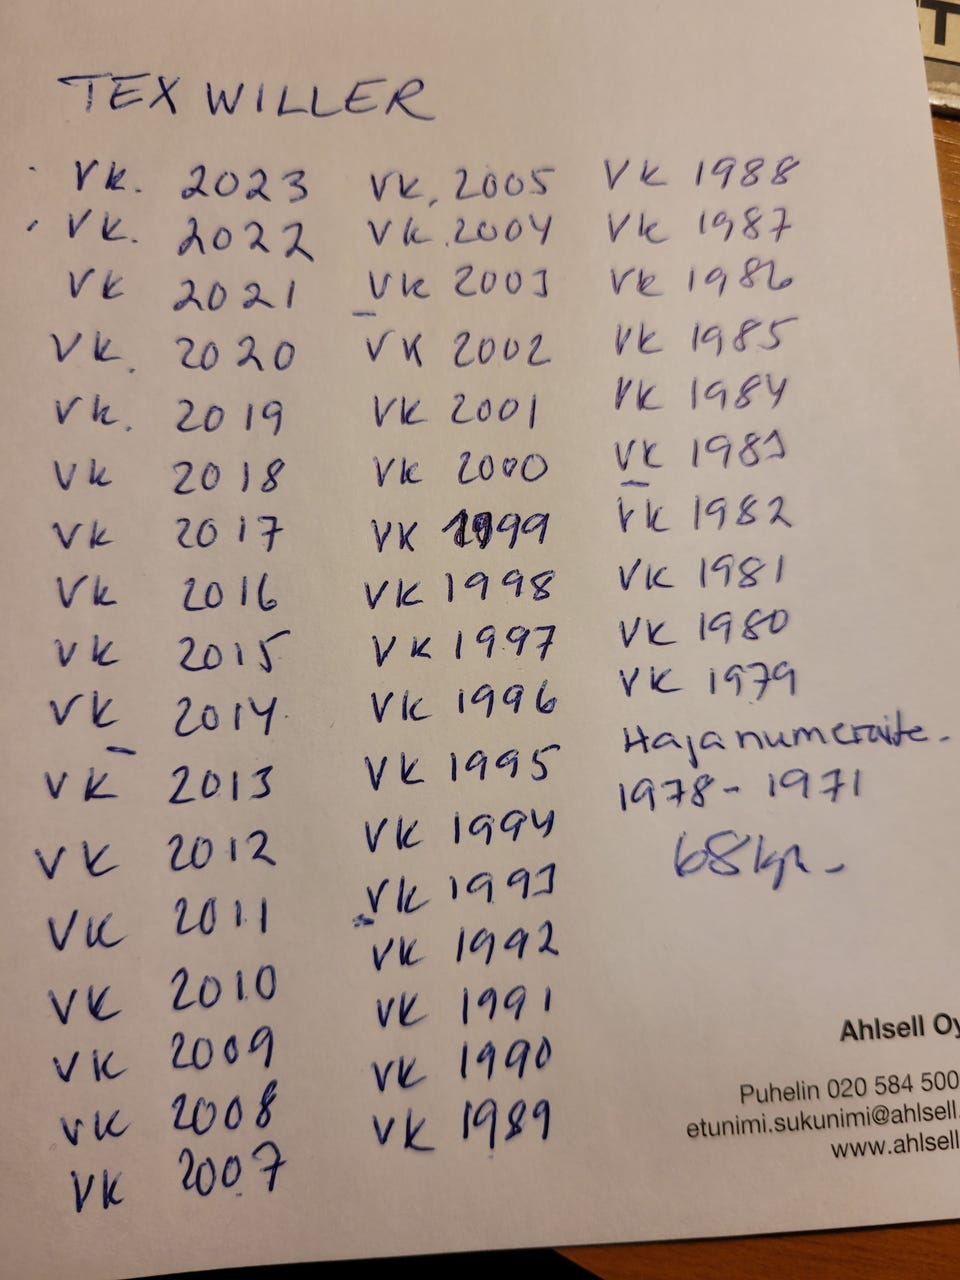 TEX WILLER
Vk. 2023
Vk. 2022
Vk 2021
Vk. 2020
Vk. 2019
Vk 2018
Vk 2017
Vk 2016
Vk 2015
Vk 2014
Vk 2013
Vk 2012
Vk 2011
Vk 2010
Vk 2009
Vk 2008
Vk 2007
Vk. 2005
Vk. 2004
Vk 2003
Vk 2002
Vk 2001
Vk 2000
Vk 1999
Vk 1998
Vk 1997
Vk 1996
Vk 1995
Vk 1994
Vk 1993
Vk 1992
Vk 1991
Vk 1990
Vk 1989
Vk 1988
Vk 1987
Vk 1986
Vk 1985
Vk 1984
Vk 1983
Vk 1982
Vk 1981
Vk 1980
Vk 1979
Hajanumeroite.
1978 - 1971
68 kpl.
Ahlsell Oy
Puhelin 020 584 500
etunimi.sukunimi@ahlsell.
www.ahlsell